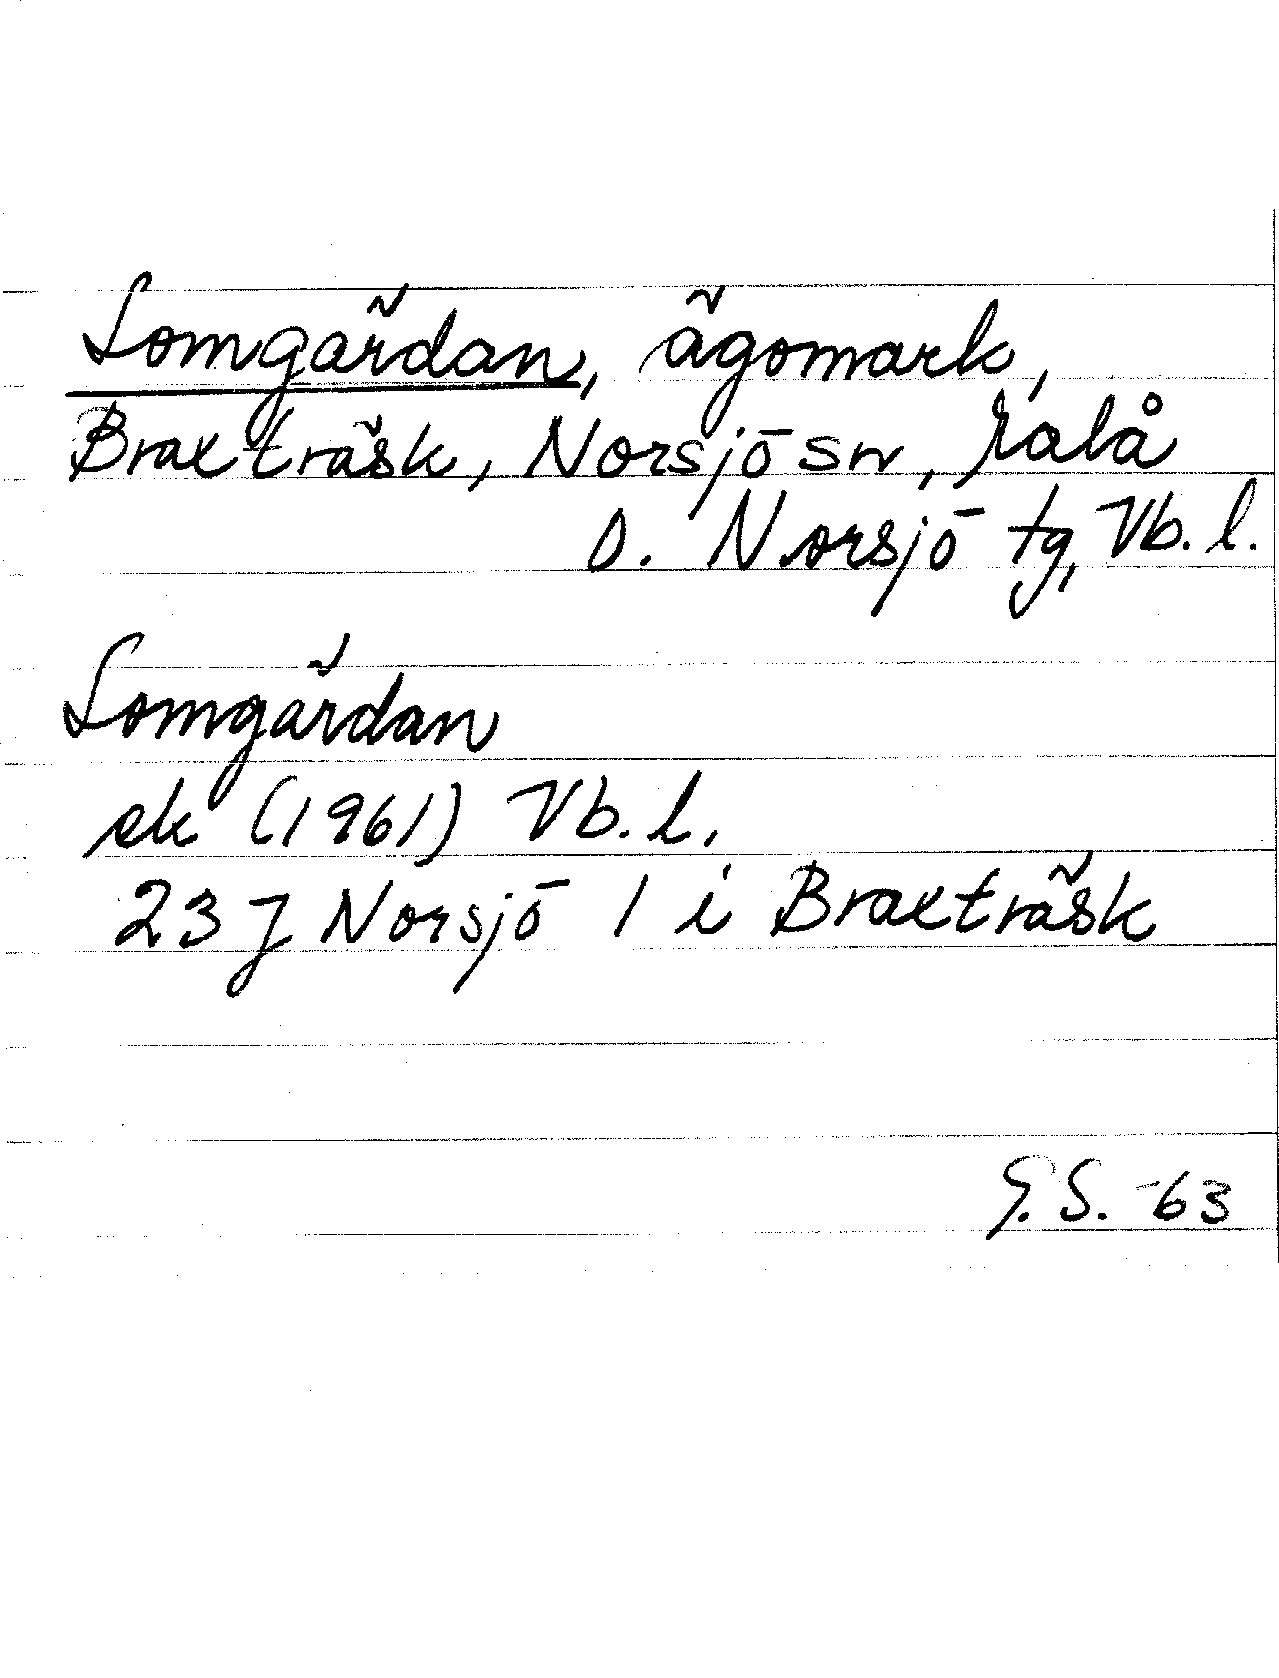 Lomgärdan, ägomark,
Braxträsk, Norsjö sn, Malå
o. Norsjö tg, Vb. l.
Lomgärdan
ek (1961) Vb. l.
23 J Norsjö 1 i Braxträsk
G.S. -63